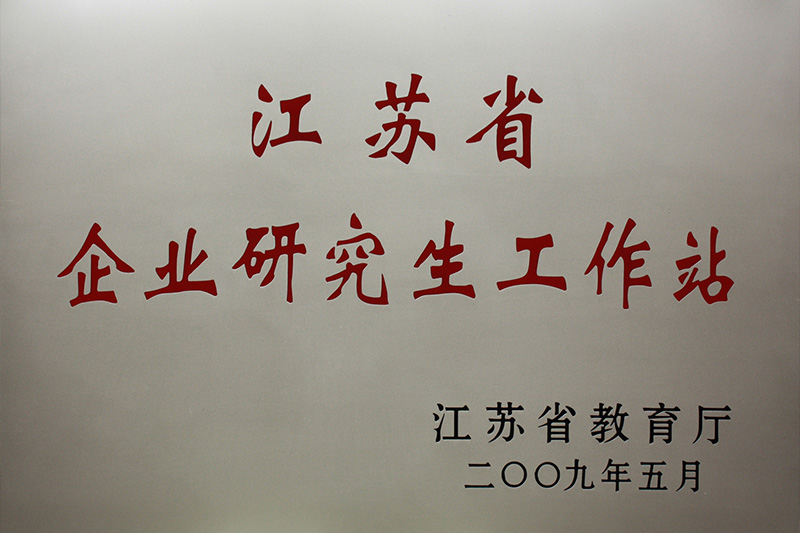 江苏省
企业研究生工作站
江苏省教育厅
二〇〇九年五月